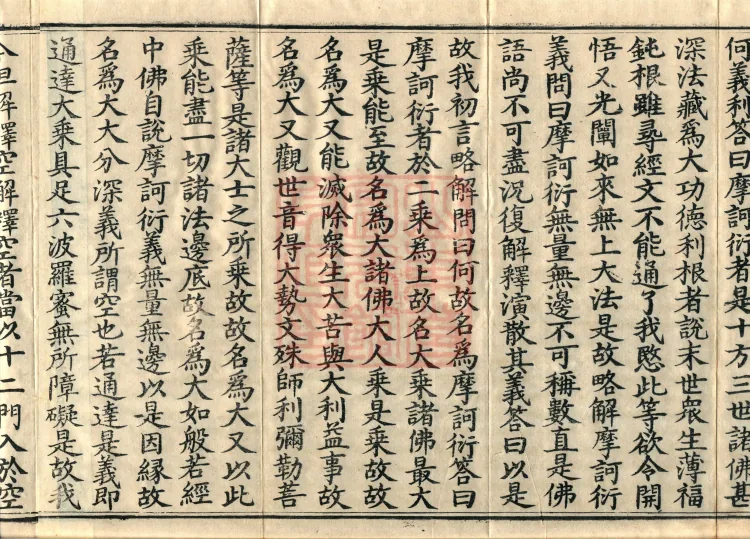 何義利答曰摩訶衍者是十方三世諸佛甚
深法藏為大功德利根者說末世眾生薄福
鈍根雖尋經文不能通了我愍此等欲令開
悟又光闡如來無上大法是故略解摩訶衍
義問曰摩訶衍無量無邊不可稱數直是佛
語尚不可盡況復解釋演散其義答曰以是
故我初言略解問曰何故名為摩訶衍答曰
摩訶衍者於二乘為上故名大乘諸佛最大
是乘能至故名為大諸佛大人乘是乘故故
名為大又能滅除眾生大苦與大利益事故
名為大又觀世音得大勢文殊師利彌勒菩
薩等是諸大士之所乘故故名為大又以此
乘能盡一切諸法邊底故名為大如般若經
中佛自說摩訶衍義無量無邊以是因緣故
名為大大分深義所謂空也若通達是義即
通達大乘具足六波羅蜜無所障礙是故我
今但解釋空解釋空者當以十二門入於空